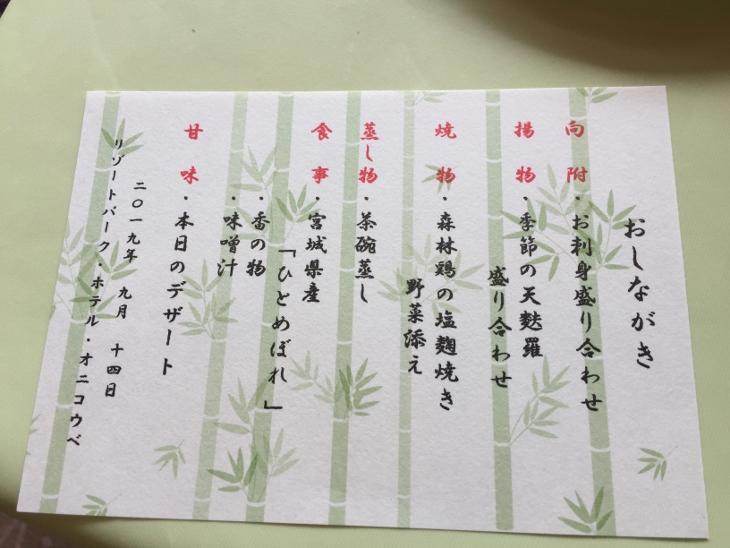 おしながき
向附・お刺身盛り合わせ
揚物・季節の天麩羅
盛り合わせ
焼物・森林鶏の塩麹焼き
野菜添え
蒸し物・茶碗蒸し
食事・宮城県産
「ひとめぼれ」
・香の物
・味噌汁
甘味・本日のデザート
二〇一九年 九月 十四日
リゾートパーク・ホテル・オニコウベ